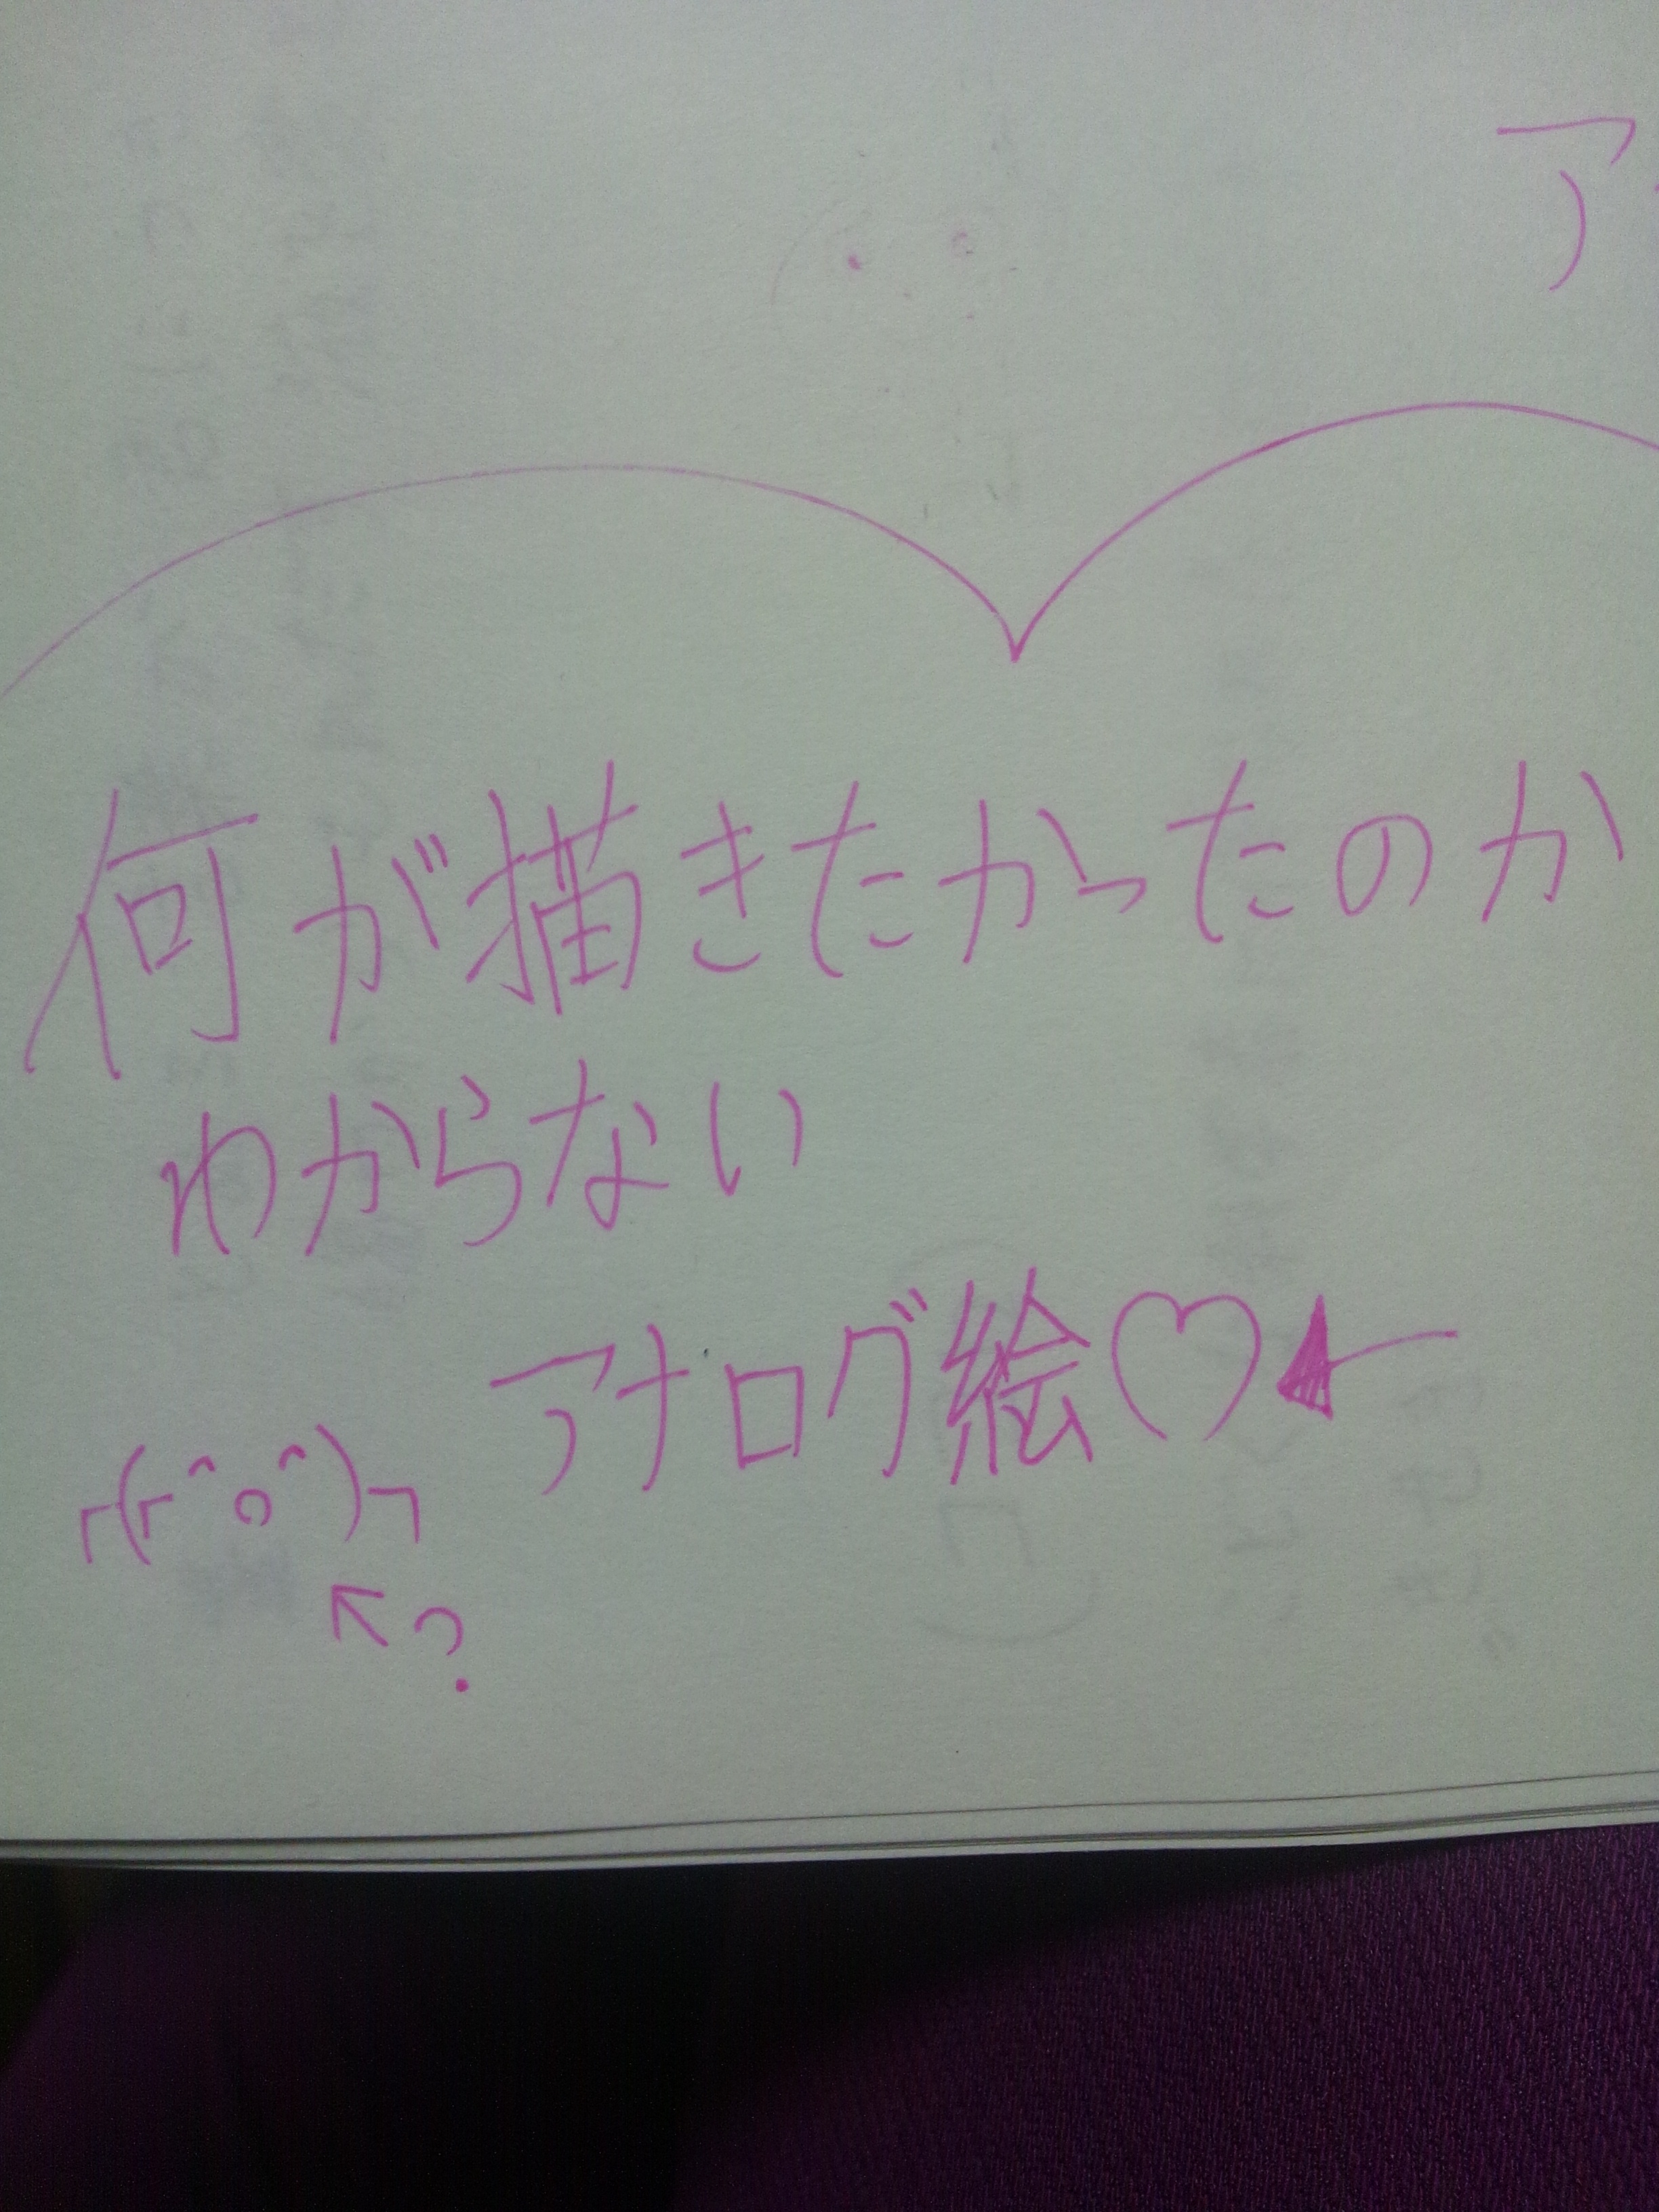 ア
何が描きたかったのか
わからない
アナログ絵♡
┌(┌^o^)┐
↖?